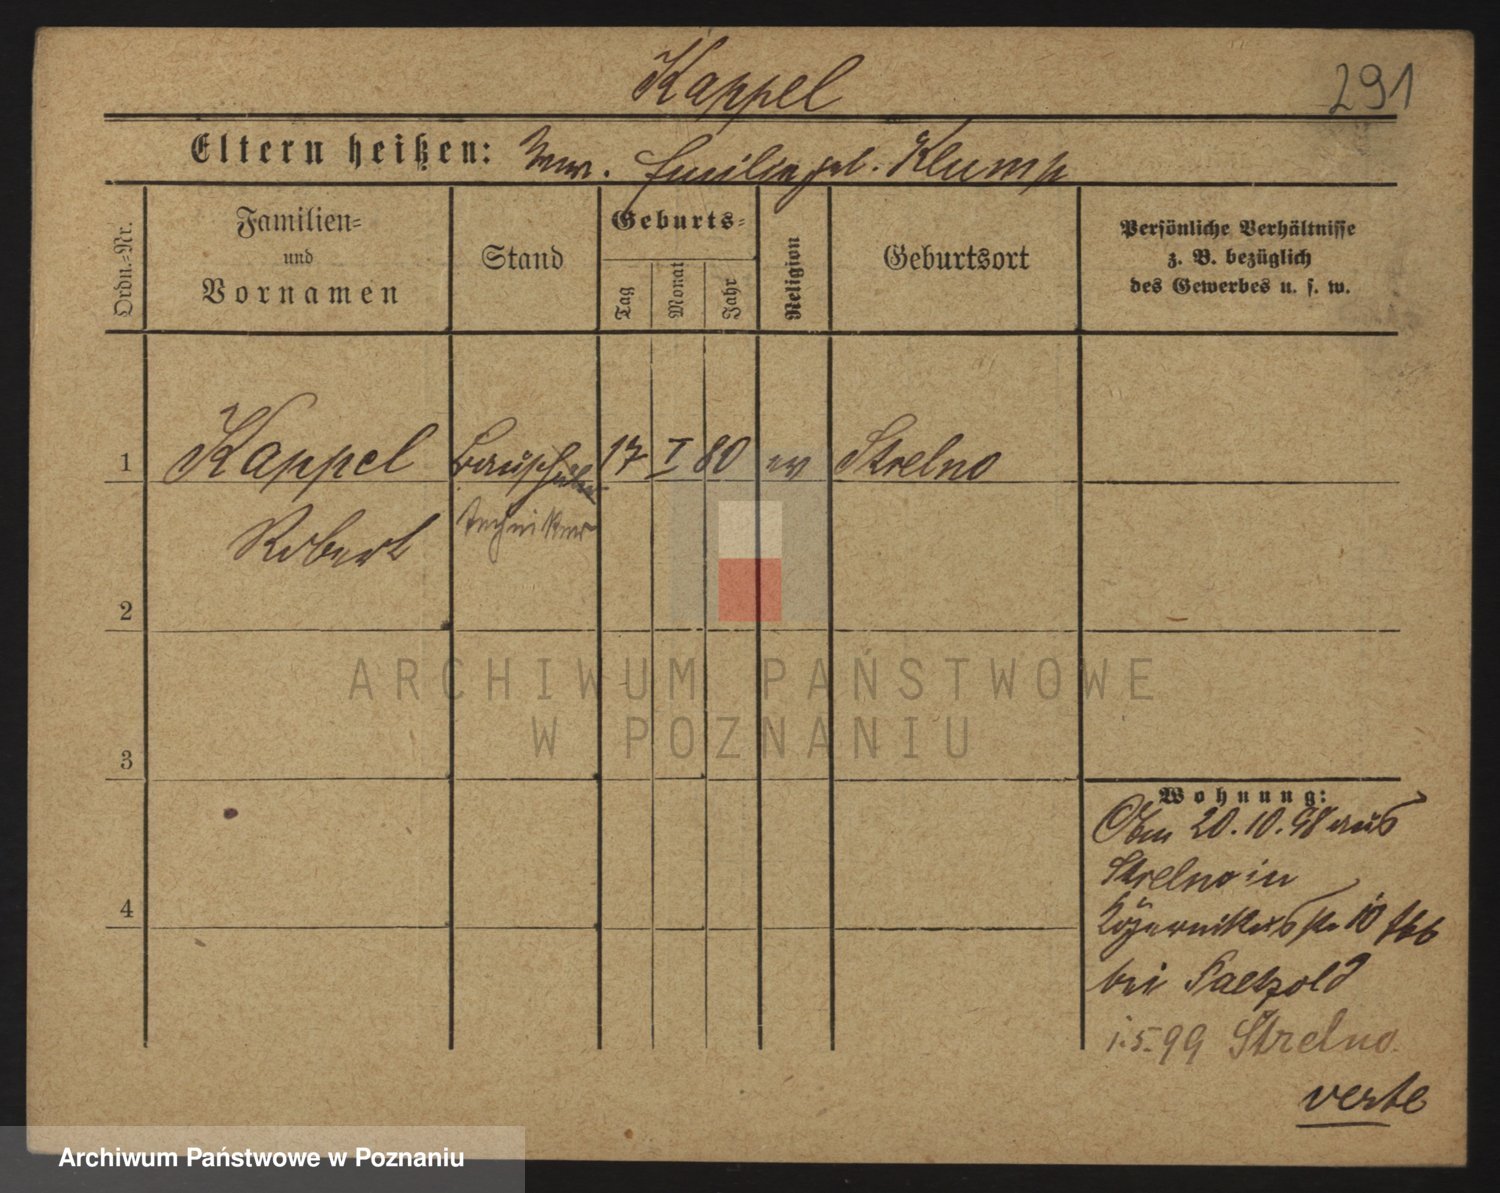 Kappel
291
Eltern heißen: Emilie geb. Klump
Ordn.-Nr.
Familien-
und
Vornamen
Stand
Geburts-
Tag
Monat
Jahr
Religion
Geburtsort
Persönliche Verhältnisse
z. B. bezüglich
des Gewerbes u. s. w.
1 Kappel Bauschüler 17 I 80 ev Strelno
Robert Techniker
2
3
4
Wohnung:
20.10.98 aus
Strelno in
10
bei Paetzold
1.5.99 Strelno
verte
ARCHIWUM PAŃSTWOWE
W POZNANIU
Archiwum Państwowe w Poznaniu